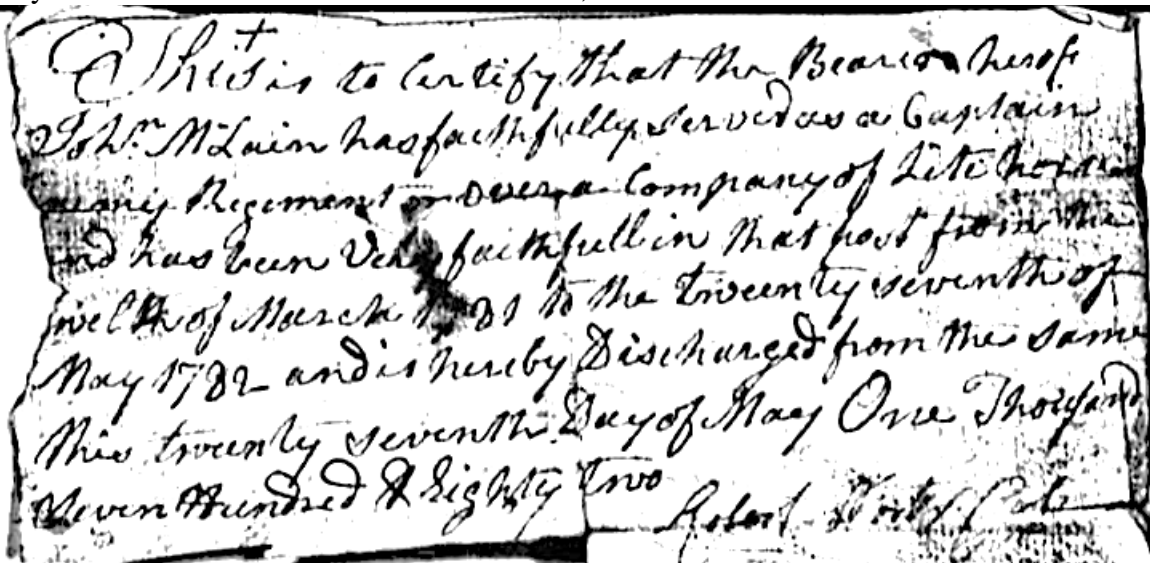 This is to Certify that the Bearer herof
John McLain has faithfully served as a Captain
in my Regiment over a Company of Lite horse
and has been Very faithfull in that post from the
twelth of March 1781 to the twenty seventh of
May 1782 and is hereby Discharged from the same
this twenty seventh Day of May One Thousand
Seven Hundred & Eighty two
Robert